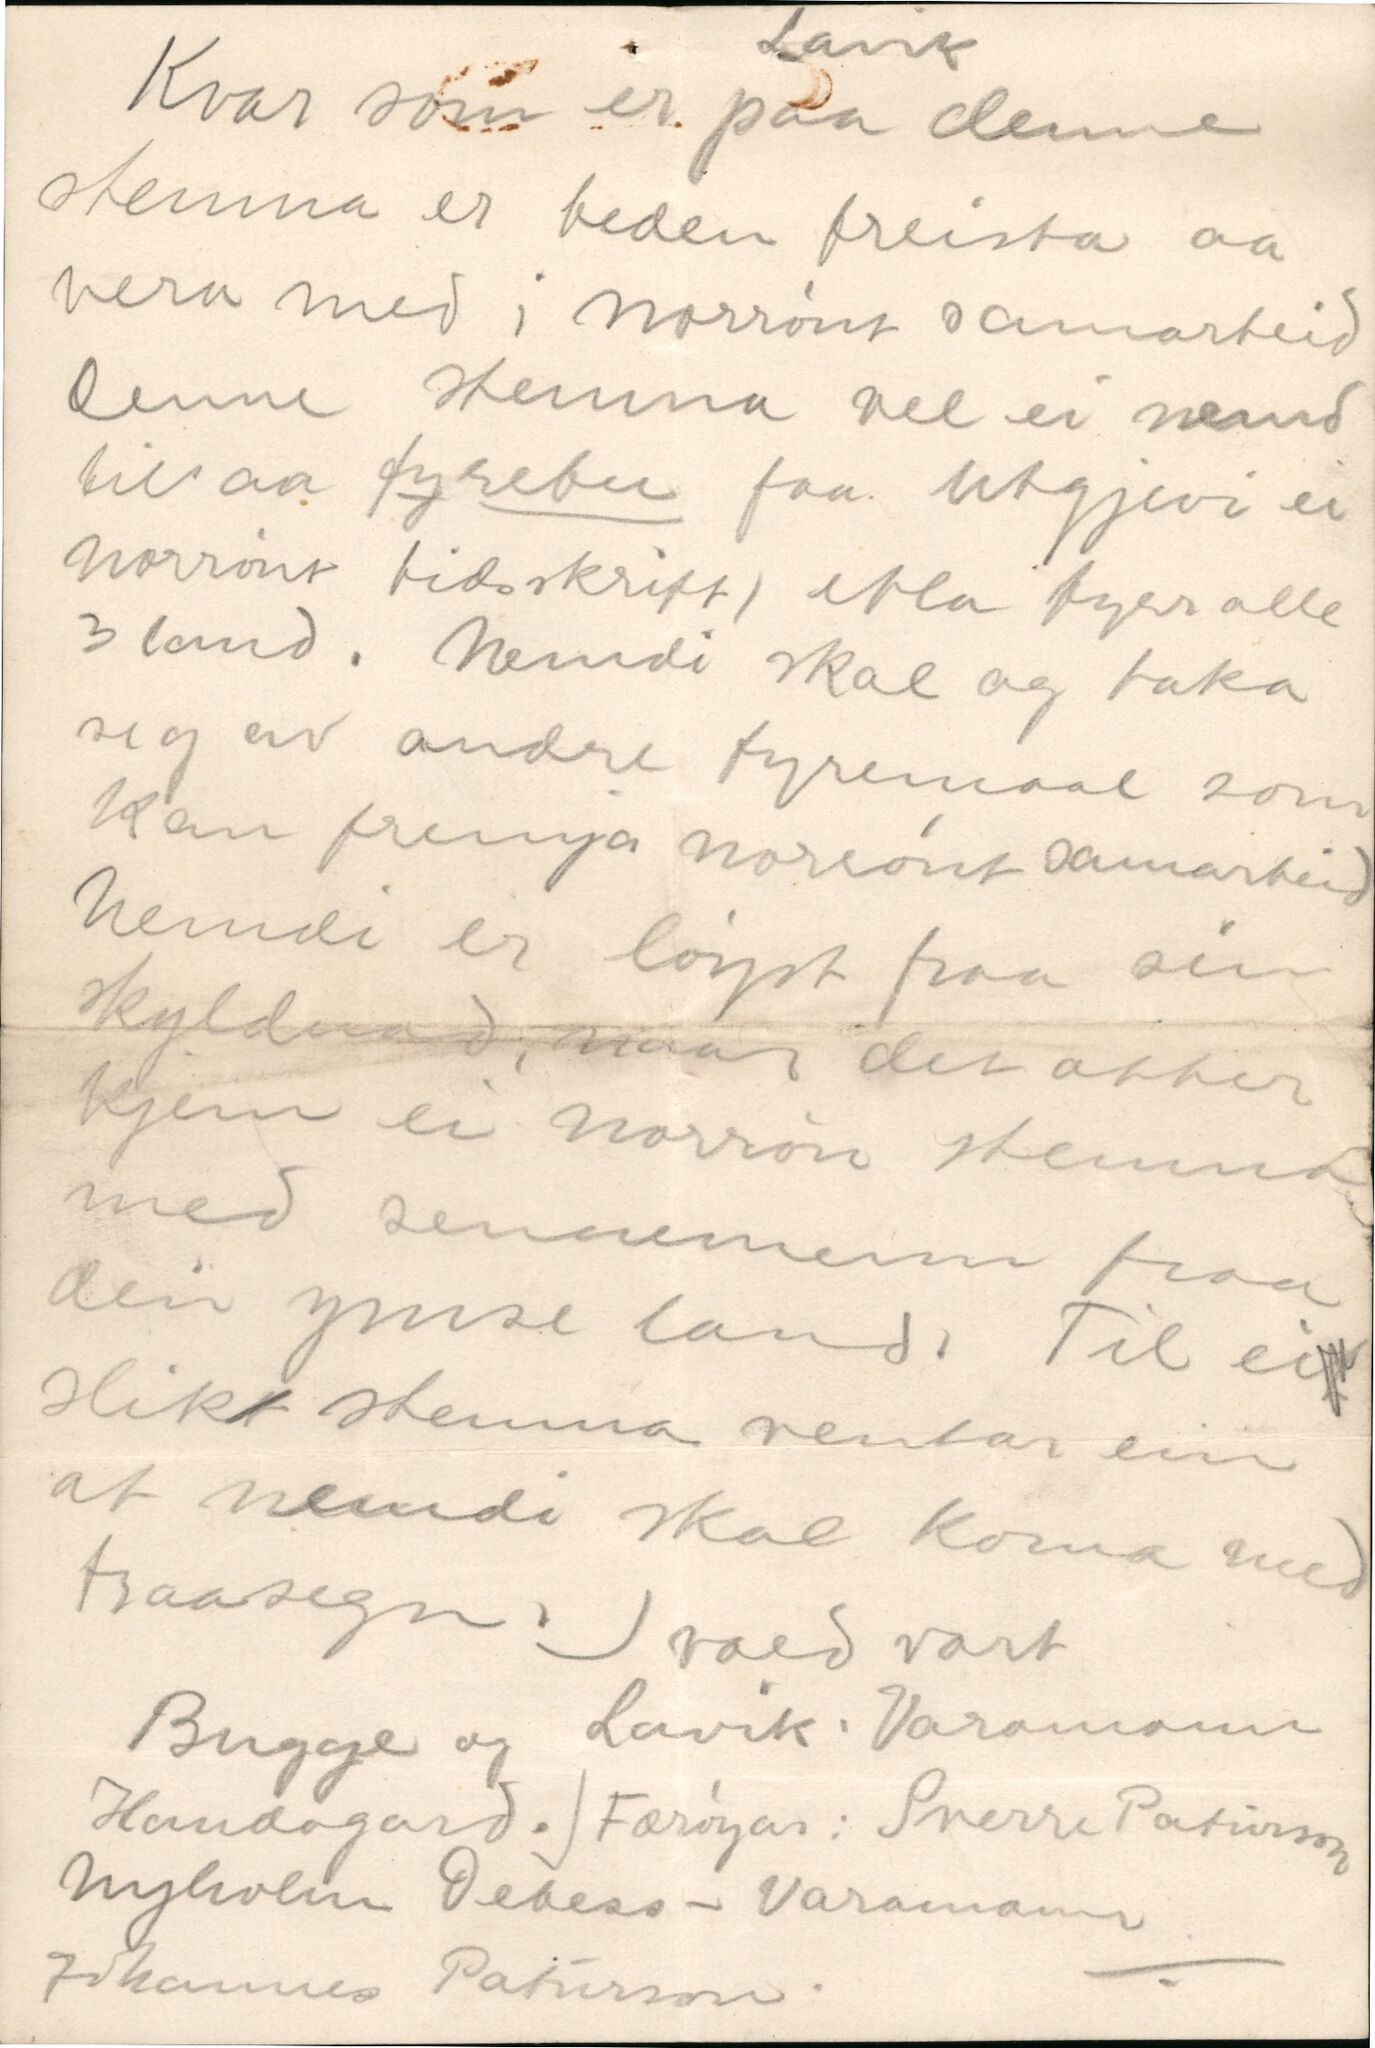 Lavik
Kvar som er paa denne
stemna er beden freista aa
vera med i norrønt samarbeid
Denne stemna vel ei nemnd
til aa fyrebu faa utgjevi ei
norrønt tidsskrift, etla fyrr alle
3 land. Nemndi skal og taka
seg av andre fyremaal som
kan fremja norrønt samarbeid
Nemndi er løyst fraa sin
skyldnad, naar det atter
kjem ei norrøn stemna
med sennemenn fraa
dei ymse land. Til ei
slik stemna ventar ein
at nemndi skal koma med
fraasegn.
) vald vart
Bugge og Lavik. Varamann
Handagard.) Færøyar: Sverre Patursson
Nyholm Debess - Varamann
Jóhannes Patursson.